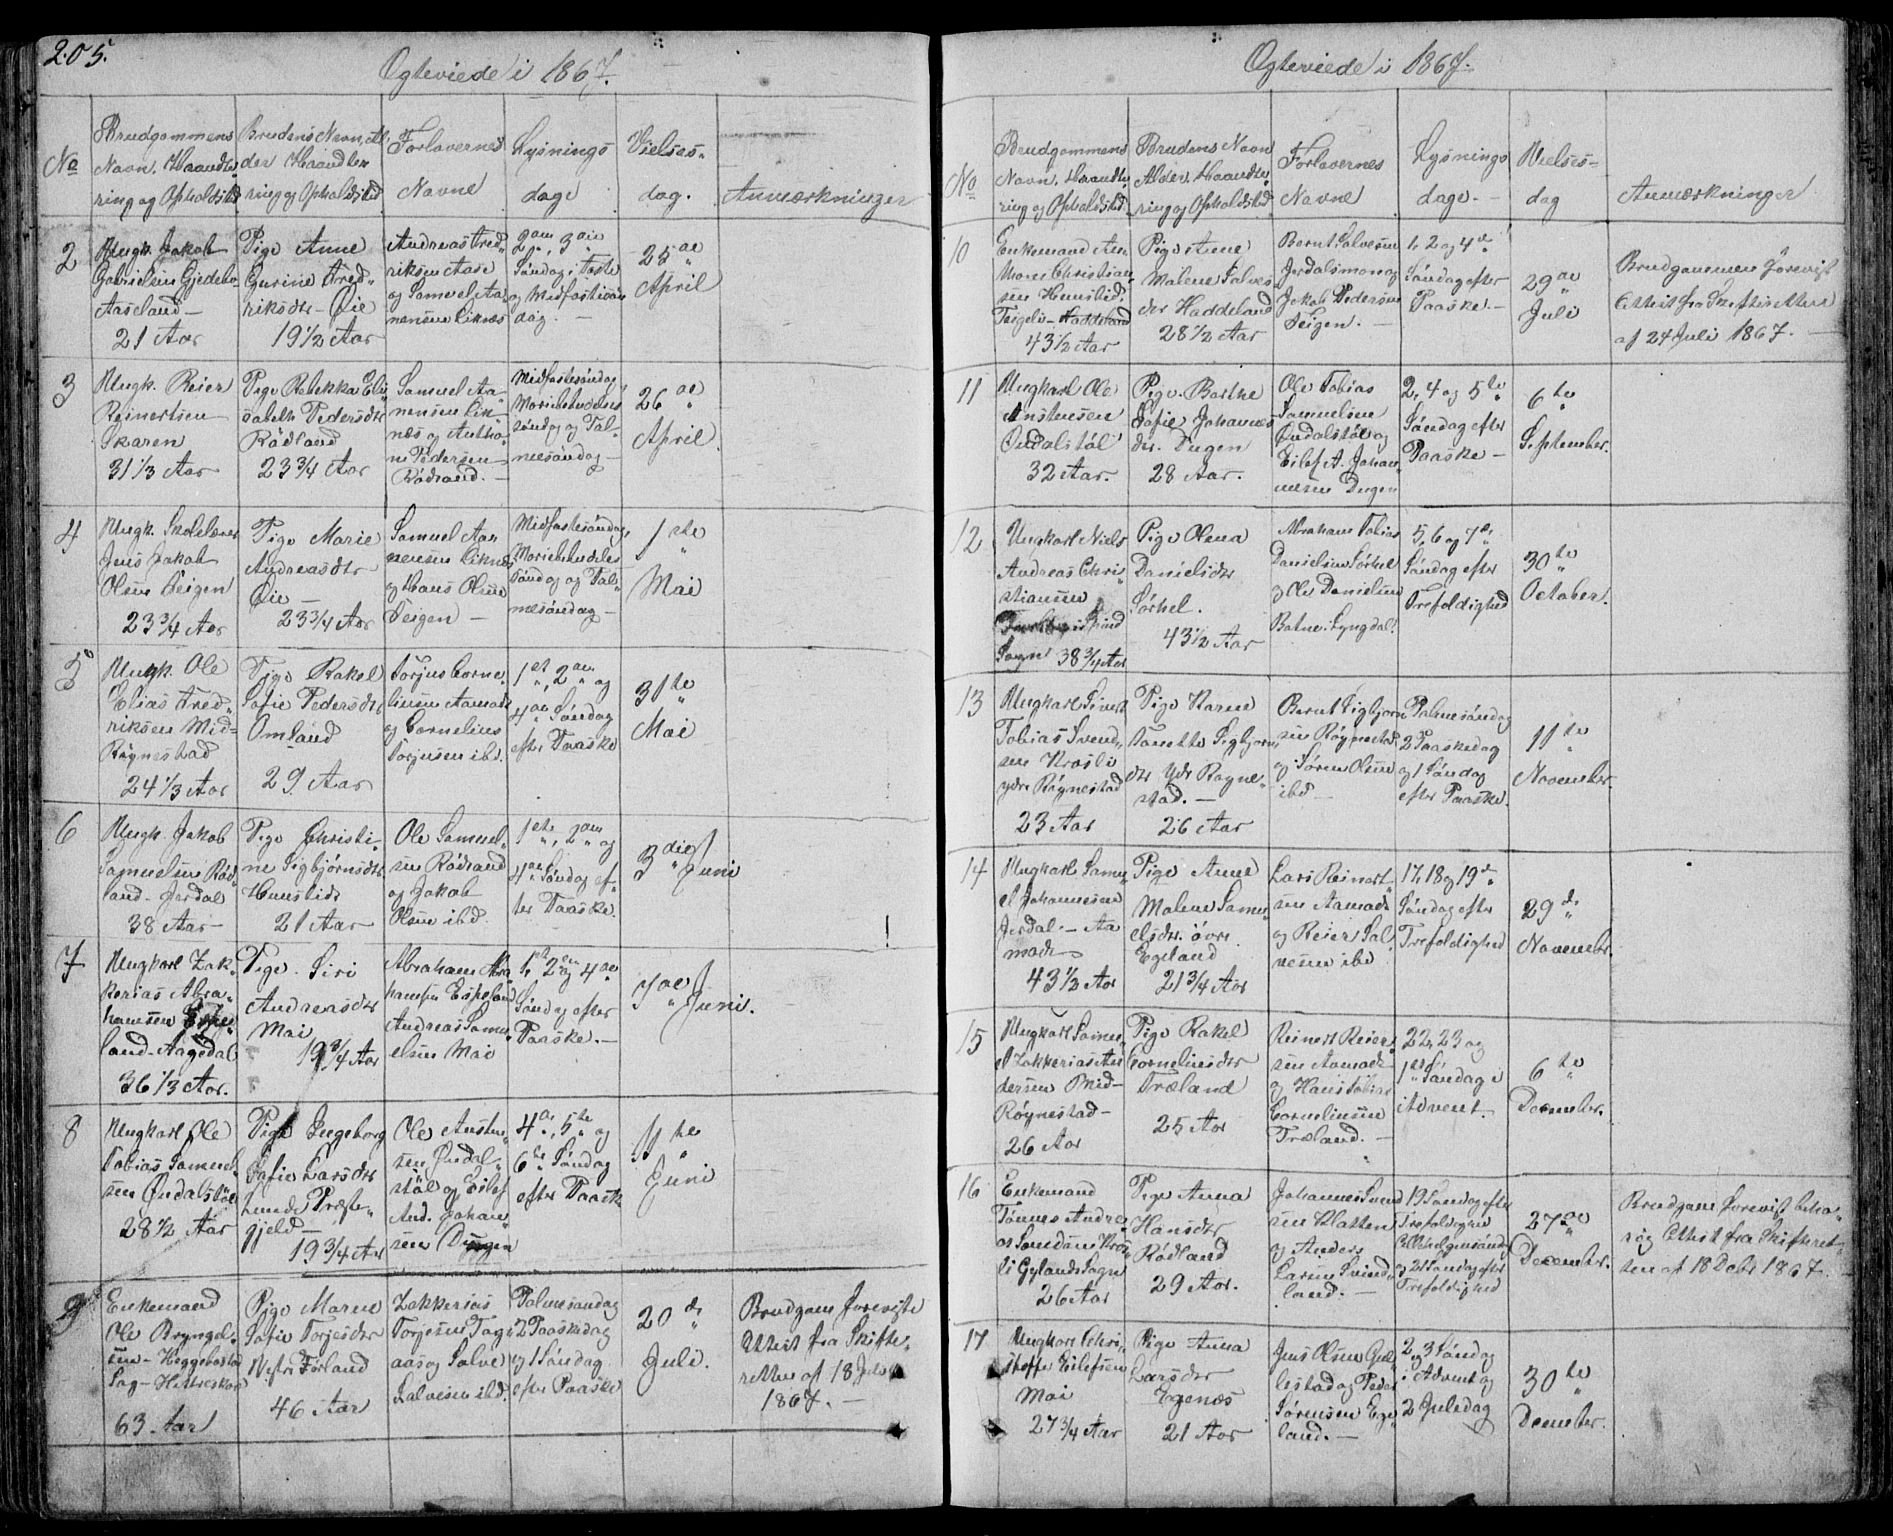 205.
Ægteviede i 1867.
No
Brudgommens
Navn, Haandte-
ring og Opholdsted
Brudens Navn, Al-
der Haandte-
ring og Opholdsted
Forlovernes
Navne
Lysnings
dage
Vielses-
dag.
Anmærkninger
2
Ungk. Jakob
Gabrielsen Gjedebo-
Aaseland -
21 Aar
Pige Anne
Gurine Fred-
riksdtr - Øie
19 1/2 Aar
Andreas Fred-
riksen Aase
og Samuel Aa-
nensen Liknæs
2den, 3die
Søndag i Faste
og Midfastesøn-
dag. -
25de
April
3
Ungk. Reier
Reinertsen
Skaren
31 1/3 Aar
Pige Rebekka Eli-
sabeth Pedersdtr
Rødland
23 3/4 Aar
Samuel Aa-
nensen Lik-
næs og Antho-
ni Pedersen
Rødland. -
Midfastesøndag,
Mariebebudelses
søndag og Pal-
mesøndag -
26de
April
4
Ungk. Skolelærer
Jens Jakob
Olsen Seigen
23 3/4 Aar
Pige Marie
Andreasdtr
Øie -
23 3/4 Aar
Samuel Aa-
nensen Liknæs
og Hans Olsen
Seigen -
Midfastesøndag,
Mariebebudelses
søndag og Pal-
mesøndag -
1ste
Mai
5
Ungk. Ole
Elias Fred-
riksen Mid-
Røgnestad
24 1/3 Aar
Pige Rakel
Sofie Pedersdtr
Omland
29 Aar
Torjus Corne-
liusen Aamodt
og Cornelius
Torjusen ibd.
1ste, 2den og
4de Søndag
efter Paaske
31te
Mai
6
Ungk. Jakob
Samuelsen Rød-
land - Jerdal
38 Aar -
Pige Christi-
ne Sigbjørnsdtr
Hunslid
21 Aar -
Ole Samuel-
sen Rødland
og Jakob
Olsen ibd.
1ste, 2den og
4de Søndag ef-
ter Paaske
3die Juni
7
Ungkarl Zak-
karias Abra-
hamsen Espe-
land - Aagedal
36 1/3 Aar.
Pige Siri
Andreasdtr
Mai
19 3/4 Aar
Abraham Abra-
hamsen Espeland
Andreas Samu-
elsen Mai
1ste, 2den og 4de
Søndag efter
Paaske. -
7de Juni.
8
Ungkarl Ole
Tobias Samuel-
sen Øndalstøl
28 1/2 Aar
Pige Ingeborg
Sofie Larsdtr
Lunde Præste-
gjeld -
19 3/4 Aar
Ole Austen-
sen Øndal-
støl og Eilef
And. Johan-
sen Dugen
4de, 5te og
6te Søndag
efter Paaske
11te
Juni
9
Enkemand
Ole Bryngel-
sen - Heggebostad
Sog - Hetteskog
63 Aar
Pige Maren
Sofie Torjesdtr
Vestre Førland
46 Aar
Zakkerias
Torjesen Tag-
aas og Salve
Salvesen ibd.
Palmesøndag
2 Paaskedag
og 1 Søndag
efter Paaske
20de
Juli.
Brudgom foreviste
Attest fra Skifte-
retten af 18 Juli
1867. -
Ægteviede i 1867.
No
Brudgommens
Navn, Haandte-
ring og Opholdsted
Brudens Navn
Alder, Haandte-
ring og Opholdsted
Forlovernes
Navne
Lysnings
dage. -
Vielses-
dag
Anmærkninger
10
Enkemand An-
thon Christian-
sen Hunslid.
Teigeli - Haddeland
43 1/2 Aar
Pige Anne
Malene Salves-
dtr Haddeland
28 1/2 Aar
Bernt Salvesen
Jerdalsmo og
Jakob Pedersen
Seigen. -
1, 2 og 4de
Søndag efter
Paaske. -
29de
Juli
Brudgommen Forevist
Attest fra Skifteretten
af 24 Juli 1867. -
11
Ungkarl Ole
Anstensen
Øndalstøl
32 Aar.
Pige Barthe
Sofie Johannes-
dtr. Dugen
28 Aar.
Ole Tobias
Samuelsen
Øndalstøl og
Eilef A. Johan-
nesen Dugen
2, 4 og 5te
Søndag efter
Paaske -
6te
September.
12
Ungkarl Niels
Andreas Chri-
stiansen
Sogn 38 3/4 Aar
Pige Olena
Danielsdtr
Sørhel.
43 1/2 Aar
Abraham Tobias
Danielsen Sørhel
og Ole Danielsen
Lyngdal.
5, 6 og 7de
Søndag efter
Trefoldighed
30te
October.
13
Ungkarl Sivert
Tobias Svend-
sen Kroslie
ydre Røgnestad
23 Aar
Pige Karen
Tonette Sigbjørns-
dtr Ydr Røgne-
stad. -
26 Aar
Bernt Sigbjørn-
sen Røgnestad
og Søren Olsen
ibd -
Palmesøndag
2 Paaskedag
og 1 Søndag
efter Paaske.
11te
November.
14
Ungkarl Samu-
el Johannesen
Jerdal. - Aa-
modt
43 1/2 Aar
Pige Anne
Malene Samu-
elsdtr. øvre
Egeland
21 3/4 Aar
Lars Reinert-
sen Aamodt
og Reier Sal-
vesen ibd
17, 18 og 19de
Søndag efter
Trefoldighed
29de
Novembr.
15
Ungkarl Samu-
el Zakkerias An-
dersen Mid-
Røgnestad -
26 Aar
Pige Rakel
Corneliusdtr
Træland
25 Aar
Reinert Reier-
sen Aamodt
og Hans Tobias
Corneliusen
Træland. -
22, 23 og
1ste Søndag i
Advent -
6te
December.
16
Enkemand
Tønnes Andre-
as Svendsen Kros-
li Gylands Sogn
26 Aar
Pige Anna
Hansdtr
Rødland
29 Aar.
Johannes Svend-
sen Klatten
og Anders
Larsen Svind-
land. -
19 Søndag efter
Trefoldighed
Allehelgensøndag
og 21 Søndag efter
Trefoldighed
27de
December.
Brudgom forevist beha-
rig Attest fra Skifteret-
ten af 18 Decbr 1867. -
17
Ungkarl Chri-
stoffer Eilefsen
Mai
27 3/4 Aar
Pige Anna
Larsdtr
Egenæs
21 Aar
Jens Olsen Gul-
lestad og Peder
Sørensen Ege-
land. -
2 og 3 Søndag
i Advent og
2 Juledag
30te
December.